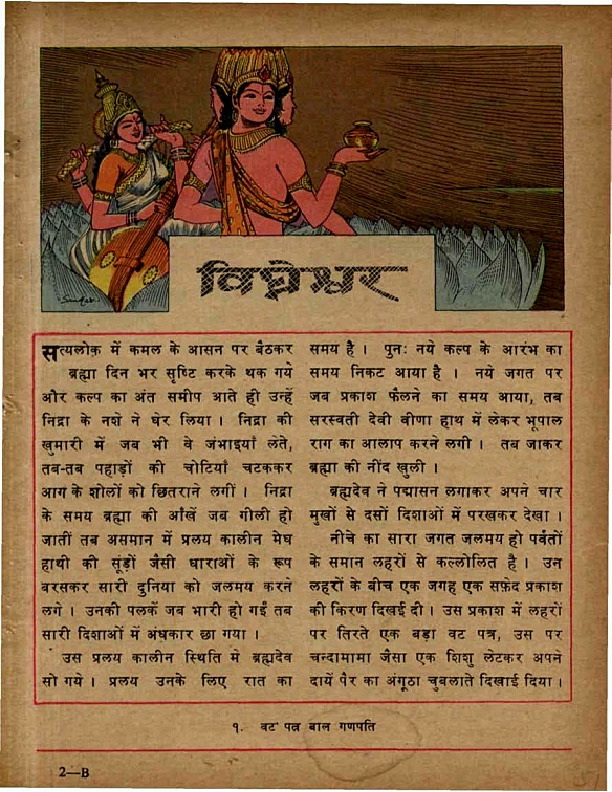 विघ्नेश्वर
सत्यलोक में कमल के आसन पर बैठकर
ब्रह्मा दिन भर सृष्टि करके थक गये
और कल्प का अंत समीप आते ही उन्हें
निद्रा के नशे ने घेर लिया । निद्रा की
खुमारी में जब भी वे जंभाइयाँ लेते,
तब-तब पहाड़ों की चोटियाँ चटककर
आग के शोलों को छितराने लगीं । निद्रा
के समय ब्रह्मा की आँखें जब गीली हो
जातीं तब असमान में प्रलय कालीन मेघ
हाथी की सूंड़ों जैसी धाराओं के रूप
बरसकर सारी दुनिया को जलमय करने
लगे । उनकी पलकें जब भारी हो गईं तब
सारी दिशाओं में अंधकार छा गया ।
उस प्रलय कालीन स्थिति मे ब्रह्मदेव
सो गये । प्रलय उनके लिए रात का
समय है । पुनः नये कल्प के आरंभ का
समय निकट आया है । नये जगत पर
जब प्रकाश फैलने का समय आया, तब
सरस्वती देवी वीणा हाथ में लेकर भूपाल
राग का आलाप करने लगी । तब जाकर
ब्रह्मा की नींद खुली ।
ब्रह्मदेव ने पद्मासन लगाकर अपने चार
मुखों से दसों दिशाओं में परखकर देखा ।
नीचे का सारा जगत जलमय हो पर्वतों
के समान लहरों से कल्लोलित है । उन
लहरों के बीच एक जगह एक सफ़ेद प्रकाश
की किरण दिखाई दी । उस प्रकाश में लहरों
पर तिरते एक बड़ा वट पत्र, उस पर
चन्दामामा जैसा एक शिशु लेटकर अपने
दायें पैर का अंगूठा चुबलाते दिखाई दिया ।
१. वट पत्र बाल गणपति
2—B